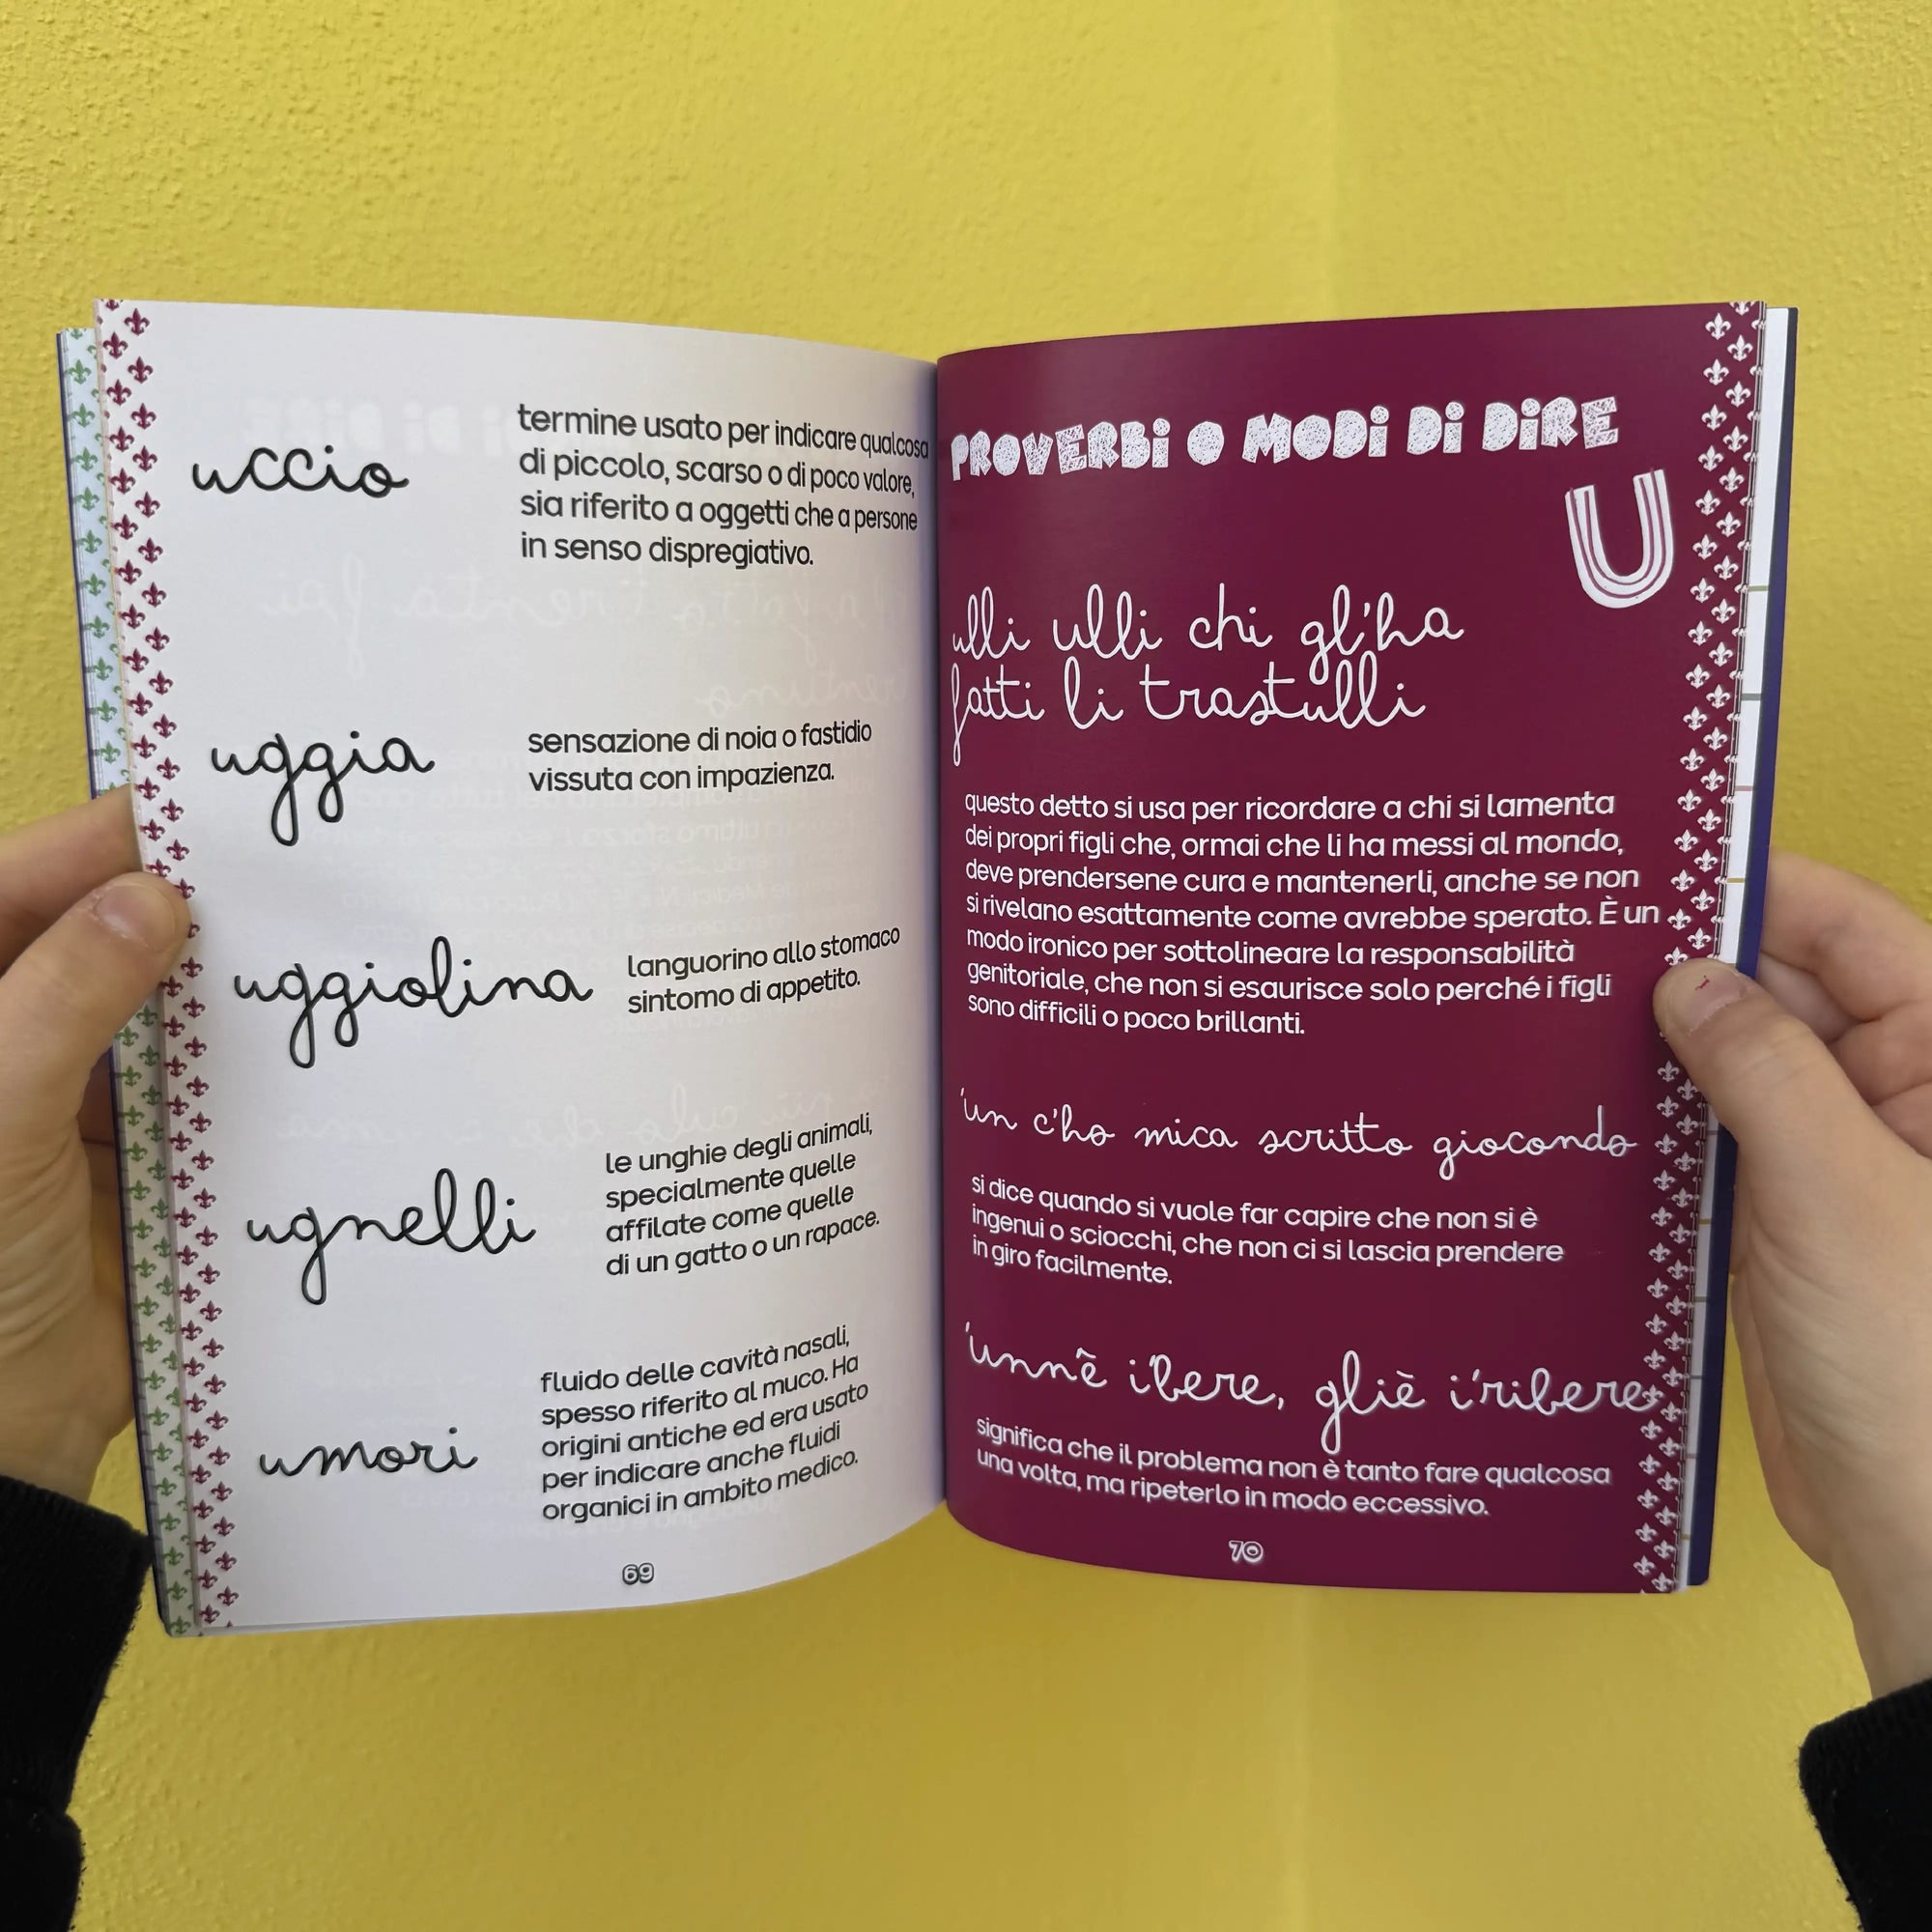 uccio
termine usato per indicare qualcosa
di piccolo, scarso o di poco valore,
sia riferito a oggetti che a persone
in senso dispregiativo.
uggia
sensazione di noia o fastidio
vissuta con impazienza.
uggiolina
languorino allo stomaco
sintomo di appetito.
ugnelli
le unghie degli animali,
specialmente quelle
affilate come quelle
di un gatto o un rapace.
umori
fluido delle cavità nasali,
spesso riferito al muco. Ha
origini antiche ed era usato
per indicare anche fluidi
organici in ambito medico.
69
PROVERBi O MODi Di DiRE
U
ulli ulli chi gl'ha
fatti li trastulli
questo detto si usa per ricordare a chi si lamenta
dei propri figli che, ormai che li ha messi al mondo,
deve prendersene cura e mantenerli, anche se non
si rivelano esattamente come avrebbe sperato. È un
modo ironico per sottolineare la responsabilità
genitoriale, che non si esaurisce solo perché i figli
sono difficili o poco brillanti.
'un c'ho mica scritto giocondo
si dice quando si vuole far capire che non si è
ingenui o sciocchi, che non ci si lascia prendere
in giro facilmente.
'unn'è i'bere, gliè i'ribere
significa che il problema non è tanto fare qualcosa
una volta, ma ripeterlo in modo eccessivo.
70